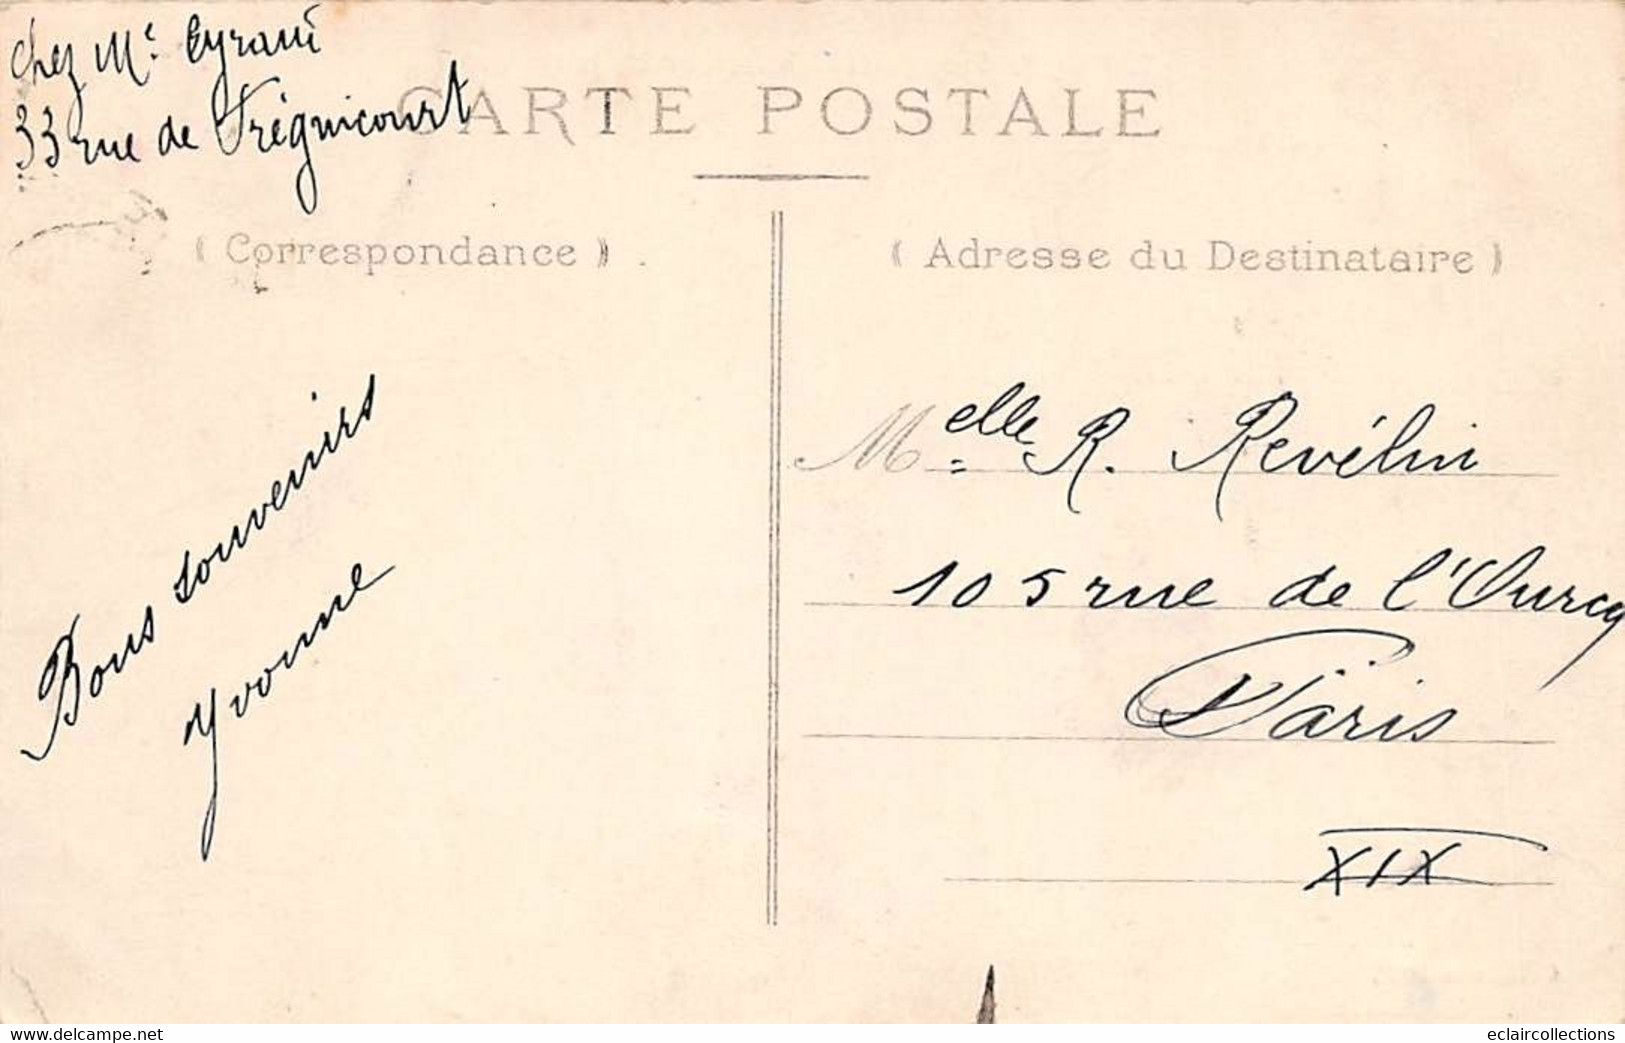 chez Mr Eyraud
33 rue de Trégnicourt
CARTE POSTALE
( Correspondance )
( Adresse du Destinataire )
Bons souvenirs
Yvonne
Melle R. Revélin
105 rue de l'Ourcq
Paris
XIX
www.delcampe.net
eclaircollections